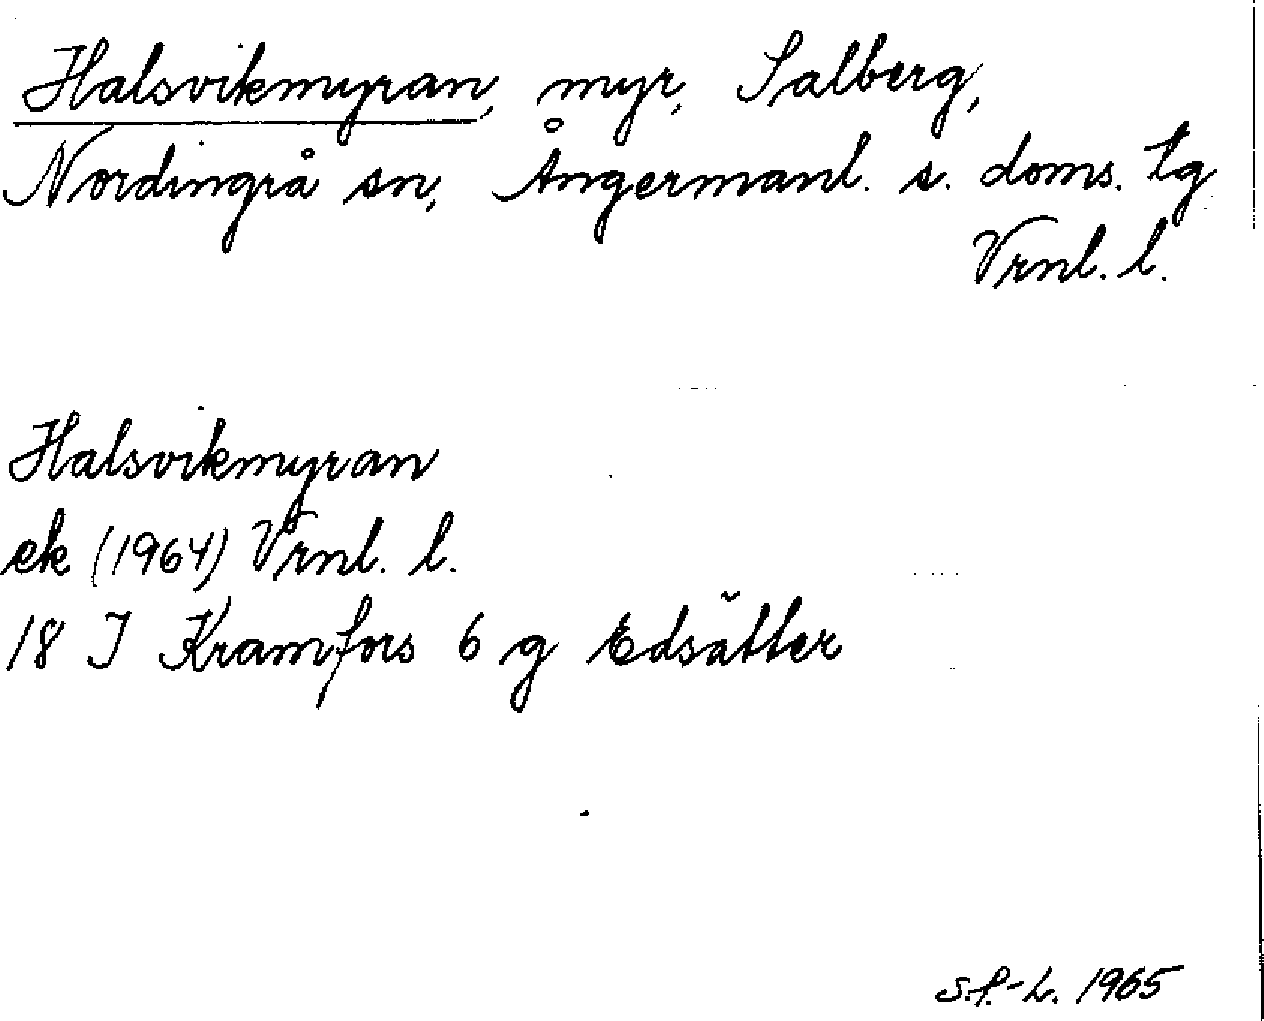 Halsvikmyran, myr, Salberg,
Nordingrå sn, Ångermanl. s. doms. tg
Vrnl. l.
Halsvikmyran
ek (1964) Vrnl. l.
18 I Kramfors 6 g Edsätter
S.P.-L. 1965